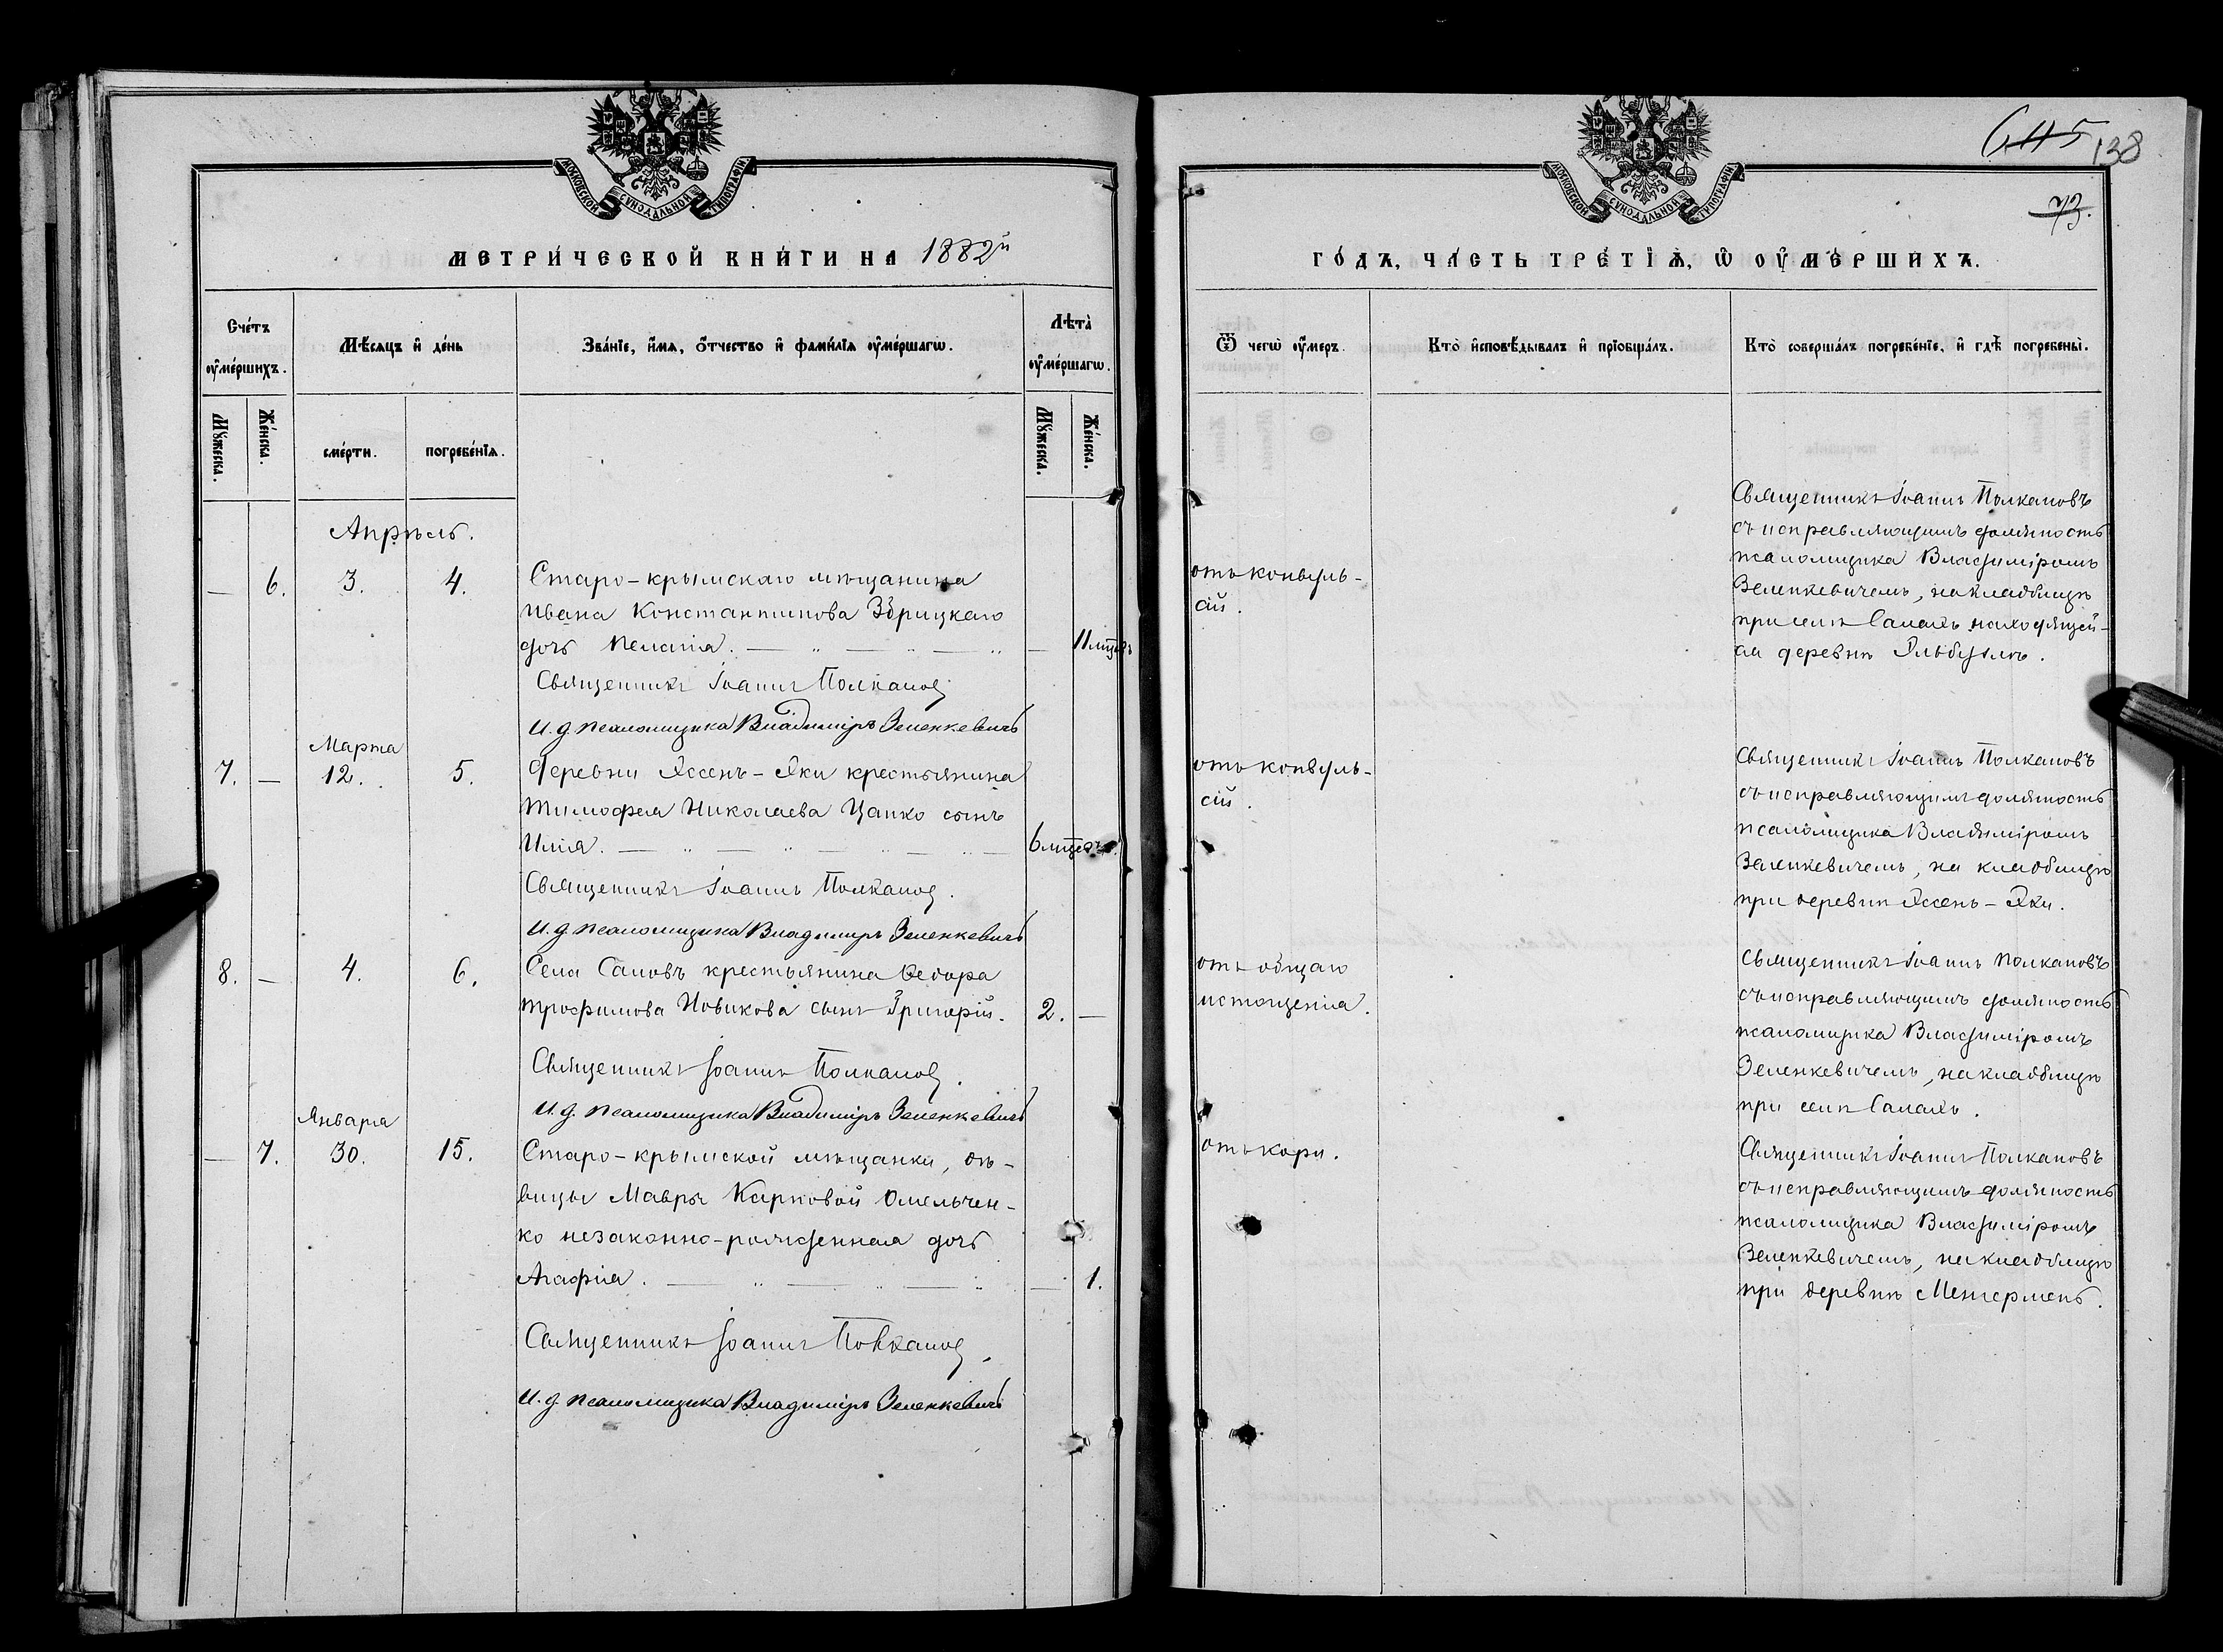 МОСКОВСКОЙ СѴНОДАЛЬНОЙ ТИПОГРАФІИ
МЕТРИ́ЧЕСКОЙ КНИ́ГИ НА 1882й
Сче́тъ ᲂу҆ме́ршихъ.
Мѣ́сяцъ и҆ де́нь
Зва́нїе, и҆́мѧ, ѻ҆́тчество и҆ фами́лїѧ ᲂу҆ме́ршагѡ.
Лѣта̀ ᲂу҆ме́ршагѡ.
Мꙋ́жеска.
Же́нска.
сме́рти.
погребе́нїѧ.
Мꙋ́жеска.
Же́нска.
Апрѣль.
— 6. 3. 4. Старо-крымскаго мѣщанина
Ивана Константинова
дочь Пелагія. — 11 мцевъ
Священникъ Іоаннъ Полканов
И. д. псаломщика Владиміръ Зеленкевичъ
Марта
7. — 12. 5. Деревни Яссенъ-Яки крестьянина
Тимофея Николаева Цапко сынъ
Илія. 6 мцевъ.
Священникъ Іоаннъ Полканов.
И. д. псаломщика Владимиръ Зеленкевичъ
8. — 4. 6. Села Саловъ крестьянина Ѳедора
Трофимова Новикова сынъ Григорій. 2. —
Священникъ Іоаннъ Полканов.
И. д. псаломщика Владиміръ Зеленкевичъ
Января
— 7. 30. 15. Старо-крымской мѣщанки, дѣ-
вицы Мавры Карповой Омельчен-
ко незаконно-рожденная дочь
Агафія. — 1.
Священникъ Іоаннъ Полканов.
И. д. псаломщика Владимиръ Зеленкевичъ
645 138
73.
МОСКОВСКОЙ СѴНОДАЛЬНОЙ ТИПОГРАФІИ
ГО́ДЪ, ЧА́СТЬ ТРЕ́ТЇѦ, Ѡ ОУ҆МЕ́РШИХЪ.
Ѿ чегѡ̀ ᲂу҆́меръ.
Кто̀ и҆сповѣ́дывалъ и҆ прїобща́лъ.
Кто̀ соверша́лъ погребе́нїе, и҆ гдѣ̀ погребены̀.
отъ конвуль-
сій.
Священникъ Іоаннъ Полкановъ
съ исправляющимъ должность
псаломщика Владиміромъ
Зеленкевичемъ, на кладбищѣ
при селѣ Салахъ находящей-
ся деревнѣ
отъ конвуль-
сій.
Священникъ Іоаннъ Полкановъ
съ исправляющимъ должность
псаломщика Владиміромъ
Зеленкевичемъ, на кладбищѣ
при деревнѣ Яссенъ-Яки.
отъ общаго
истощенія.
Священникъ Іоаннъ Полкановъ
съ исправляющимъ должность
псаломщика Владиміромъ
Зеленкевичемъ, на кладбищѣ
при селѣ Салахъ.
отъ кори.
Священникъ Іоаннъ Полкановъ
съ исправляющимъ должность
псаломщика Владиміромъ
Зеленкевичемъ, на кладбищѣ
при деревнѣ